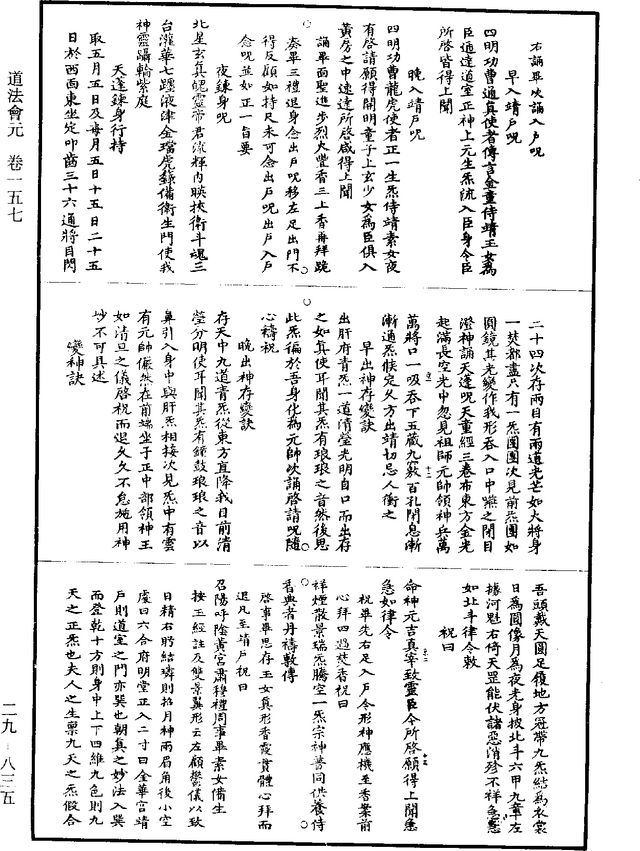 右誦畢次誦入戶呪
早入靖戶呪
四明功曹通真使者傳言金童侍靖玉女為
臣通達道室正神上元生炁流入臣身令臣
所啓皆得上聞
晚入靖戶呪
四明功曹龍虎使者正一生炁侍靖素女夜
有啓請願得開明童子上玄少女為臣俱入
黃房之中速達所啓咸得上聞
誦畢面聖進步烈火豐香三上香再拜跪
奏畢三禮退身念出戶呪移左足出門不
得反顧如持尺未可念出戶呪出戶入戶
念呪並如正一旨要
夜鍊身呪
北星玄真魄靈帶君流輝內映挾衛斗魂三
台灌華七躔液津金璫虎籙備衛生門使我
神靈躡輪紫庭
天蓬鍊身行持
取五月五日及每月五日十五日二十五
日於西面東坐定叩齒三十六通將目閃
二十四次存兩目有兩道光芒如火將身
一焚都盡只有一炁團團次見前炁團如
圓鏡其光變作我形吞入口中嚥之閉目
澄神誦天蓬呪天童經三卷布東方金光
起滿長空光中忽見祖師元帥領神兵萬
萬將口一吸吞下五藏九竅百孔閉息漸
漸通炁候定久方出靖切忌人衝之
早出神存變訣
出肝府青炁一道清瑩光明自口而出存
之如真使耳聞其炁有琅琅之音然後思
此炁徧於吾身化為元帥次誦啓請呪隨
心禱祝
晚出神存變訣
存天中九道青炁從東方直降我目前清
瑩分明使耳聞其炁有鐘鼓琅琅之音以
鼻引入身中與肝炁相接次見炁中有雲
有元帥儼然在前端坐子正中部領神王
如清旦之儀啓祝而退久久不怠施用神
妙不可具述
變神訣
吾頭戴天圓足履地方冠帶九炁結為衣裳
日為圓像月為夜光身披北斗六甲九章左
據河魁右倚天罡能伏諸惡消殄不祥急急
如北斗律令敕
祝曰
命神元吉真宰致靈臣今所啓願得上聞急
急如律令
祝畢先右足入戶令形神應機至香案前
心拜四過焚香祝曰
祥煙散景瑞炁騰空一炁宗神普同供養侍
香典者丹禱敷傳
啓事畢思存玉女真形香霞貫體心拜而
退凡至靖戶祝曰
召陽呼陰黃宮肅穆禮周事畢素女備生
按玉經註及雙景真形云左顧鬱儀以致
日精右眄結璘則招月神兩眉角後小空
虛曰六合府明堂正入二寸曰金華宮靖
戶則道室之門亦巽也朝真之妙法入巽
而登乾十方則身中上下四維九色則九
天之正炁也夫人之生禀九天之炁假合
道法會元 卷一五七
二九 - 八三五